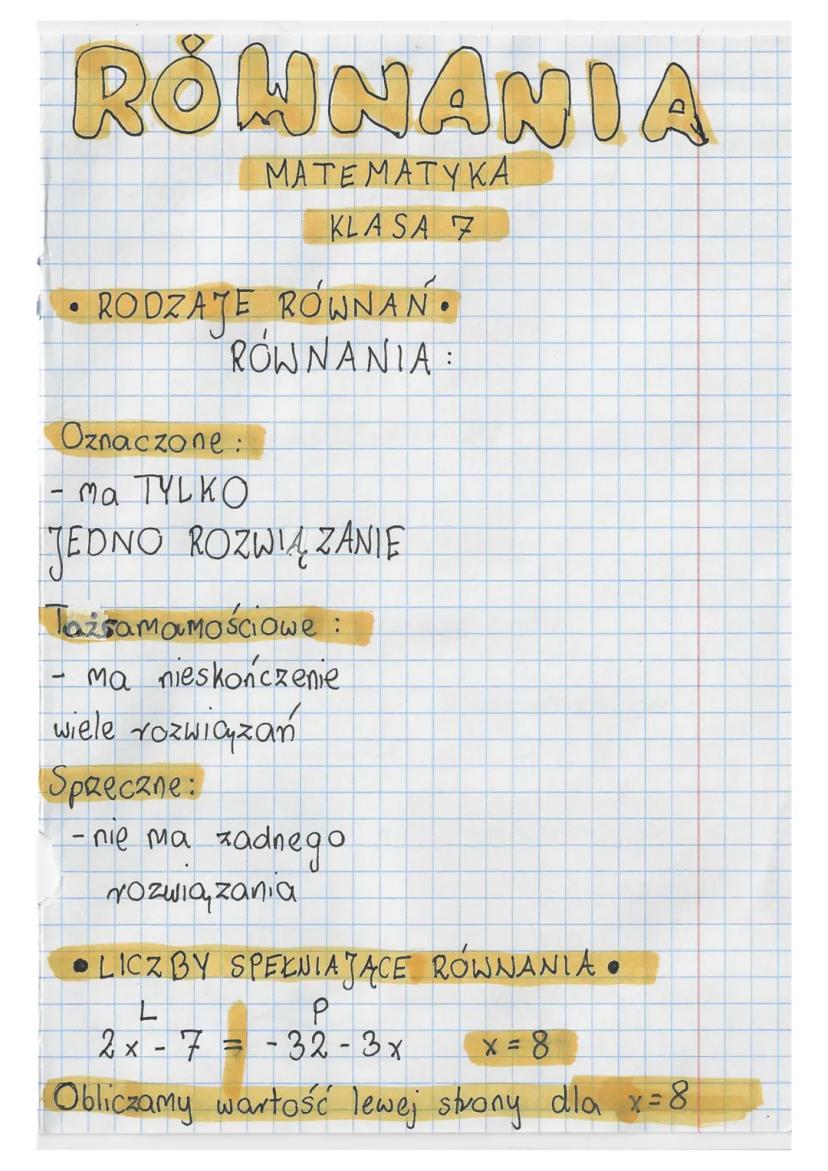 RÓWNANIA
MATEMATYKA
KLASA 7
• RODZAJE RÓWNAŃ •
RÓWNANIA:
Oznaczone:
- ma TYLKO
JEDNO ROZWIĄZANIE
Tażsamamościowe:
- ma nieskończenie
wiele rozwiązań
Sprzeczne:
- nie ma żadnego
rozwiązania
• LICZBY SPEŁNIAJĄCE RÓWNANIA •
L P
2x - 7 = -32 - 3x x = 8
Obliczamy wartość lewej strony dla x = 8